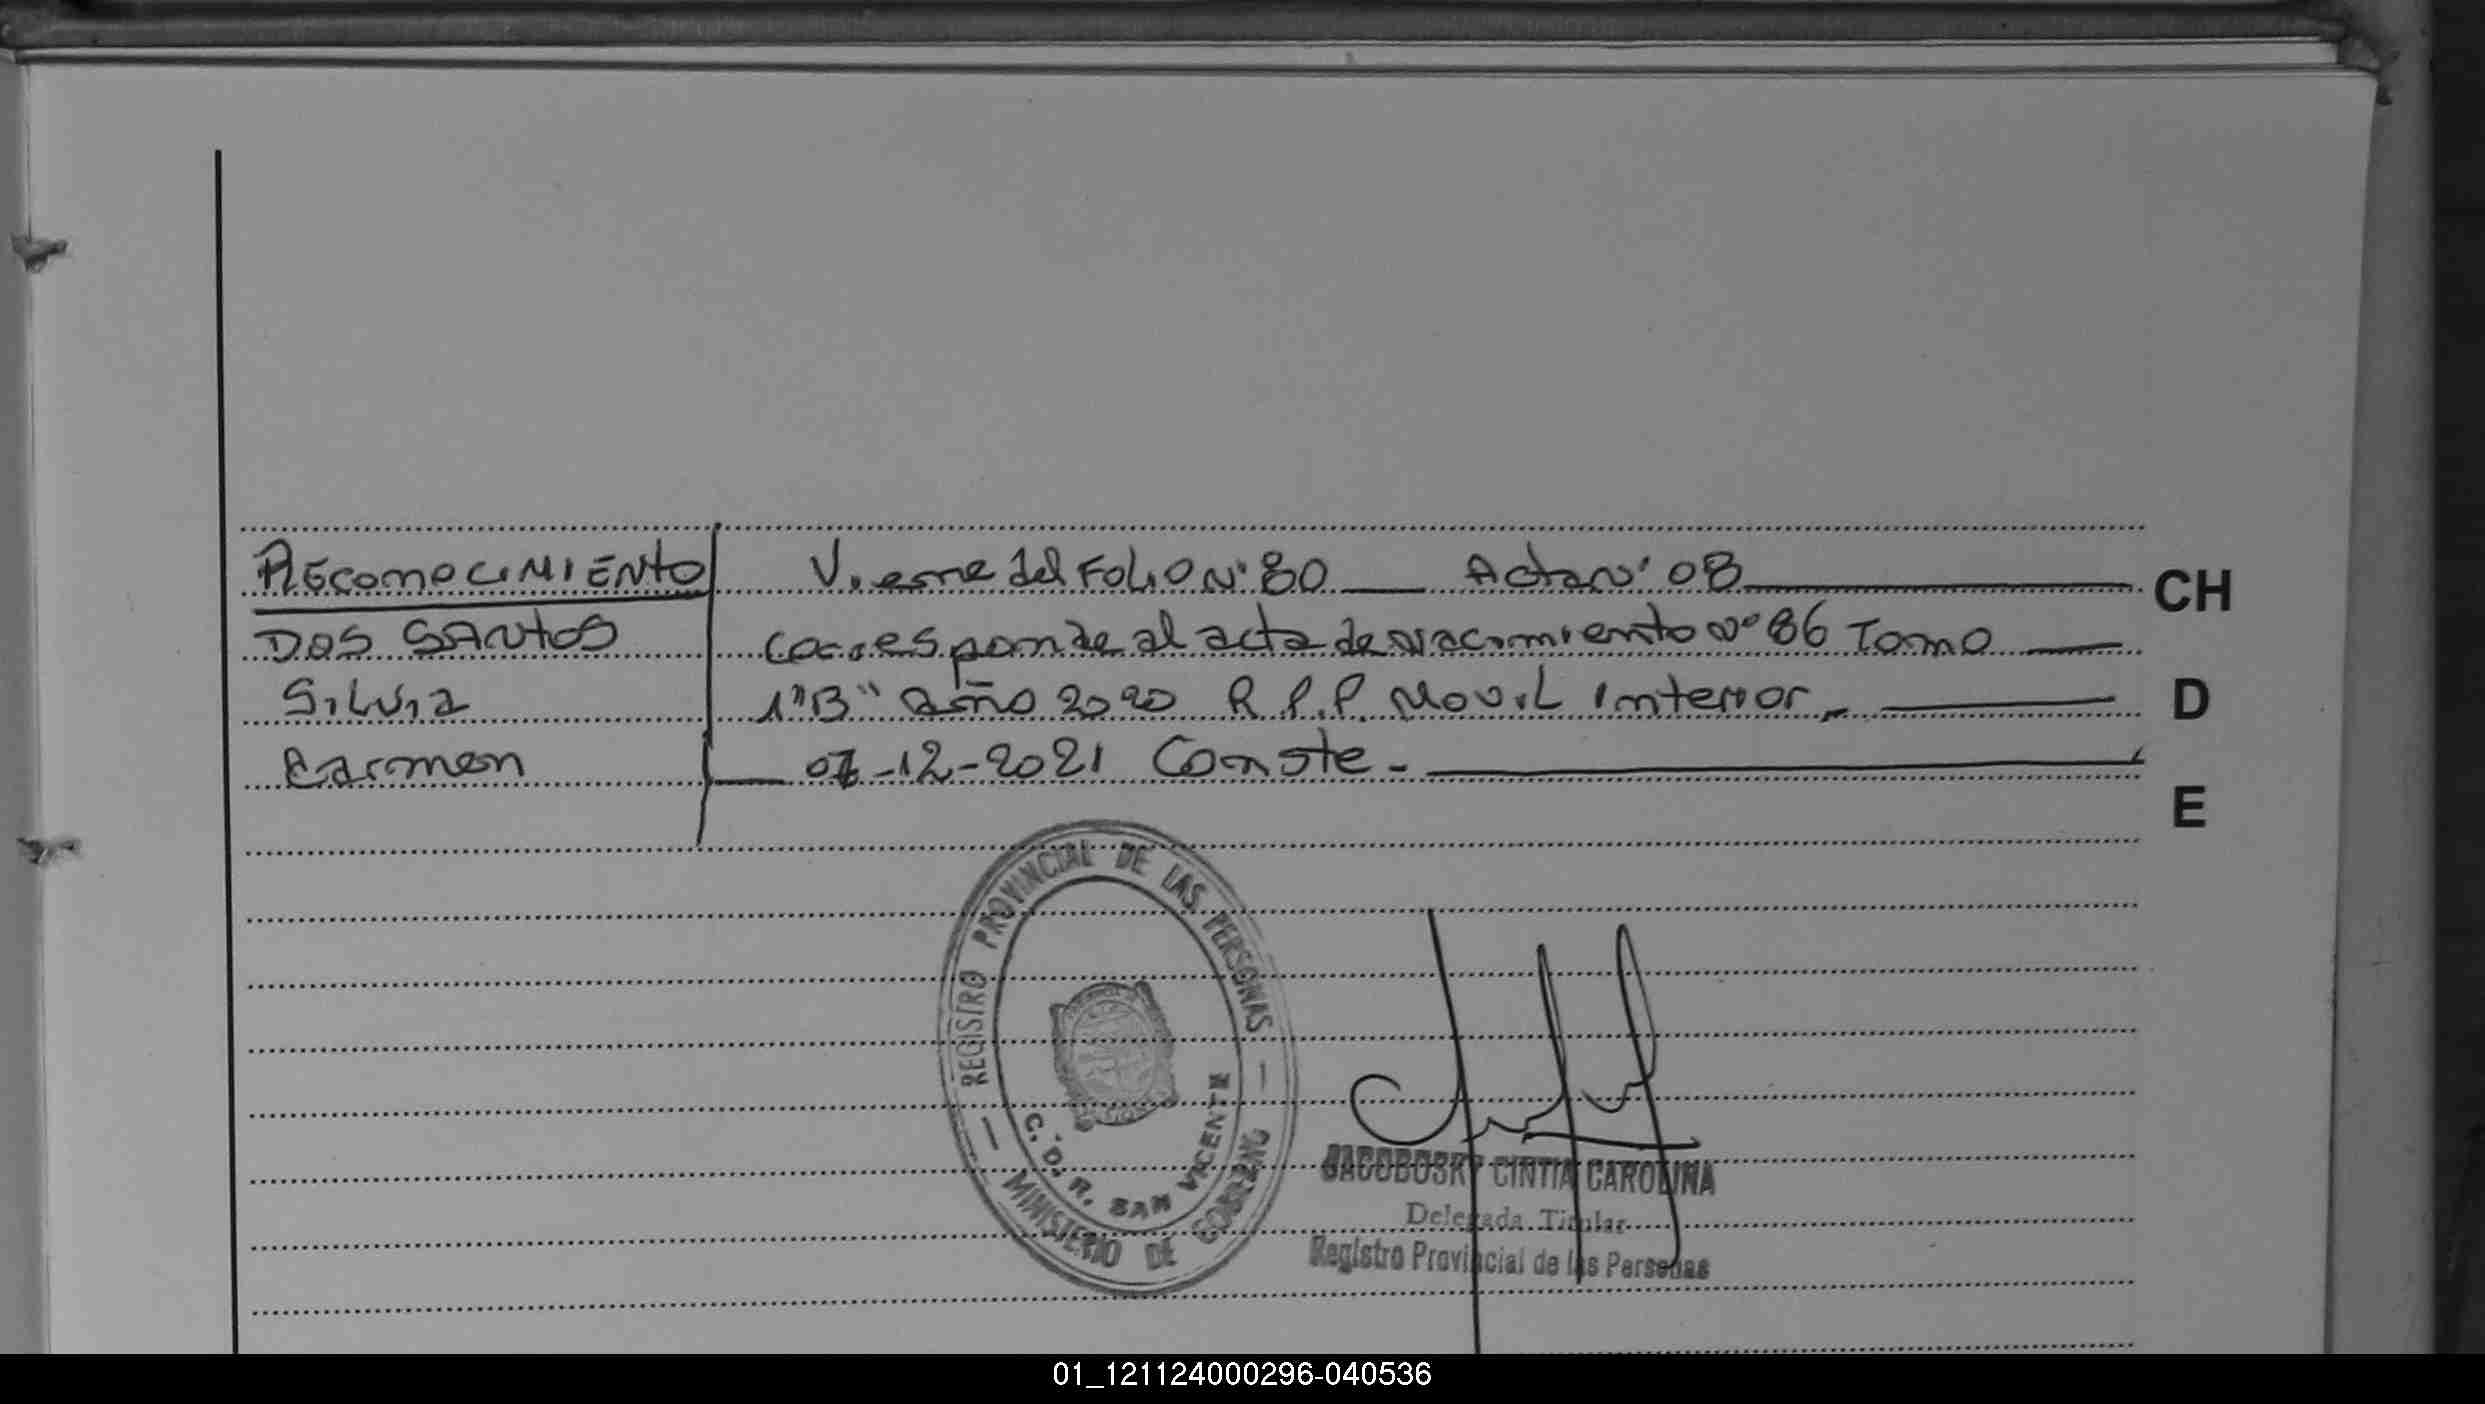 RECONOCIMIENTO Viene del Folio N° 80 — Acta N° 08 CH
DOS SANTOS corresponde al acta de Nacimiento N° 86 Tomo
Silvia 1"B" año 2020 R.P.P. Movil Interior. D
Carmen 07-12-2021 Conste. E
REGISTRO PROVINCIAL DE LAS PERSONAS
C. D. R. SAN VICENTE
MINISTERIO DE GOBIERNO
JACOBOSKY CINTIA CAROLINA
Delegada Titular
Registro Provincial de las Personas
01_121124000296-040536